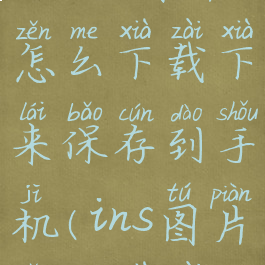 zěn me xià zài xià
怎么下载下
lái bǎo cún dào shǒu
来保存到手
jī tú piàn
机(ins图片